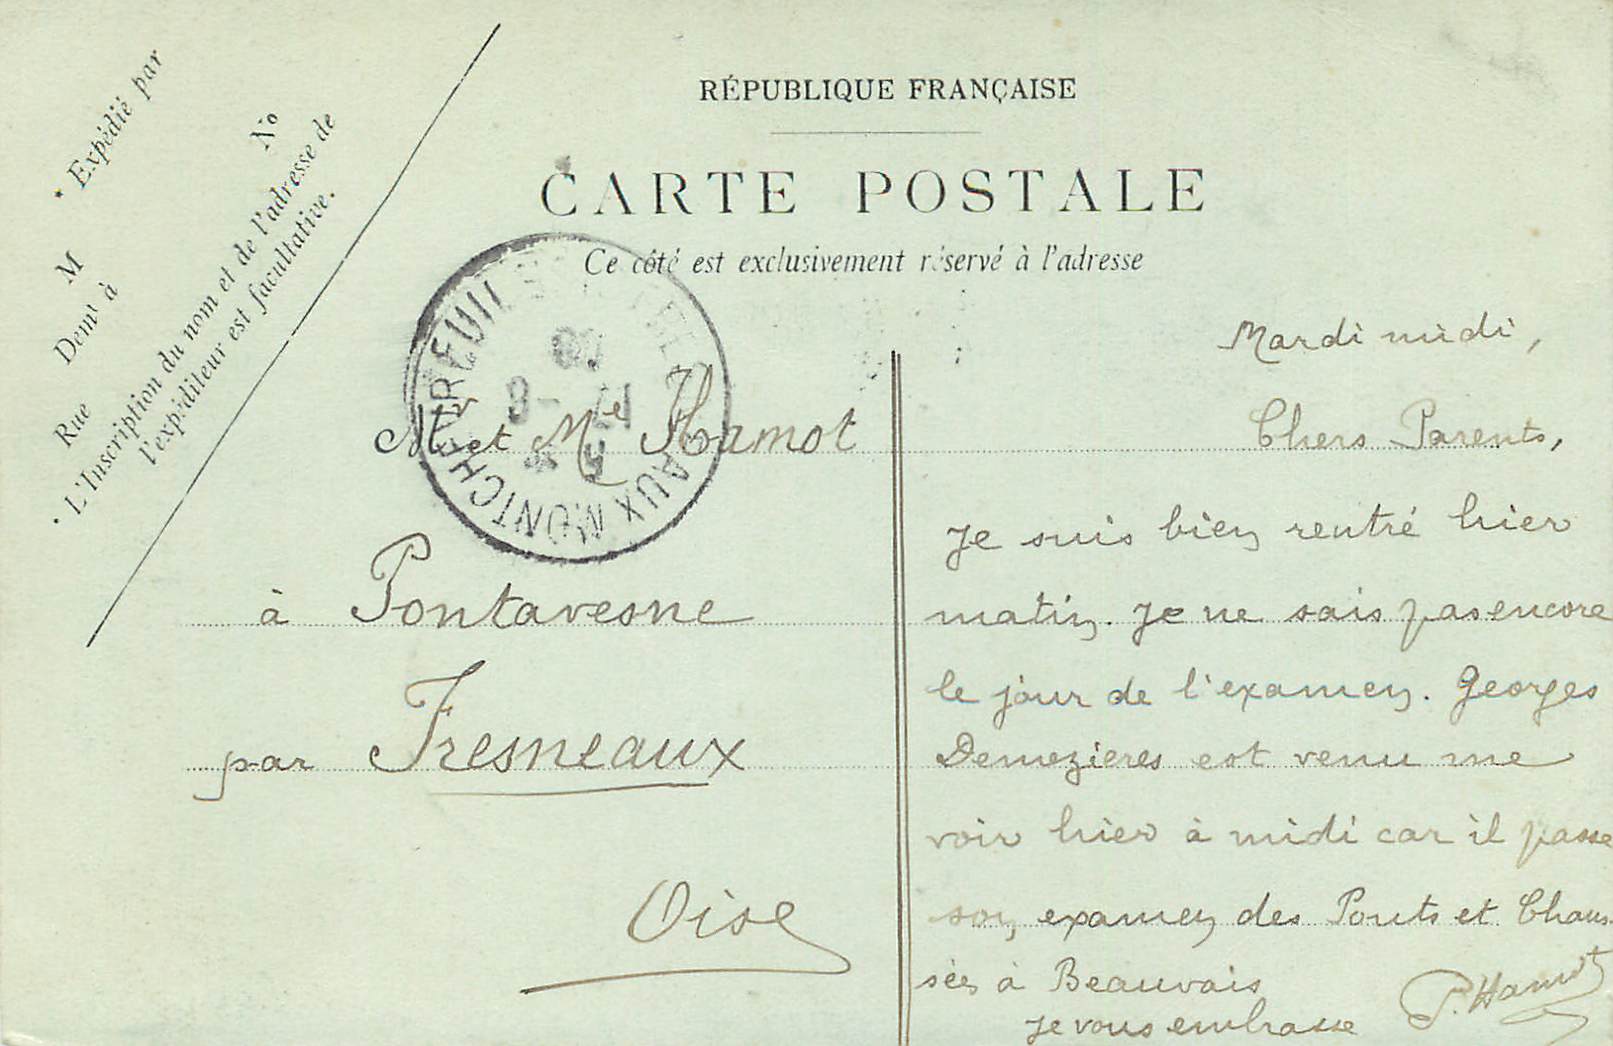 RÉPUBLIQUE FRANÇAISE
CARTE POSTALE
Ce côté est exclusivement réservé à l'adresse
* Expédié par
M
No
Demt à
Rue
* L'Inscription du nom et de l'adresse de
l'expéditeur est facultative.
AUX MONTCH
Mr et Me Hamot
à Pontavesne
par Fresneaux
Oise
Mardi midi,
Chers Parents,
Je suis bien rentré hier
matin. Je ne sais pas encore
le jour de l'examen. Georges
Demezieres est venu me
voir hier à midi car il passe
son examen des Ponts et Chaus
sées à Beauvais
Je vous embrasse
P. Hamot